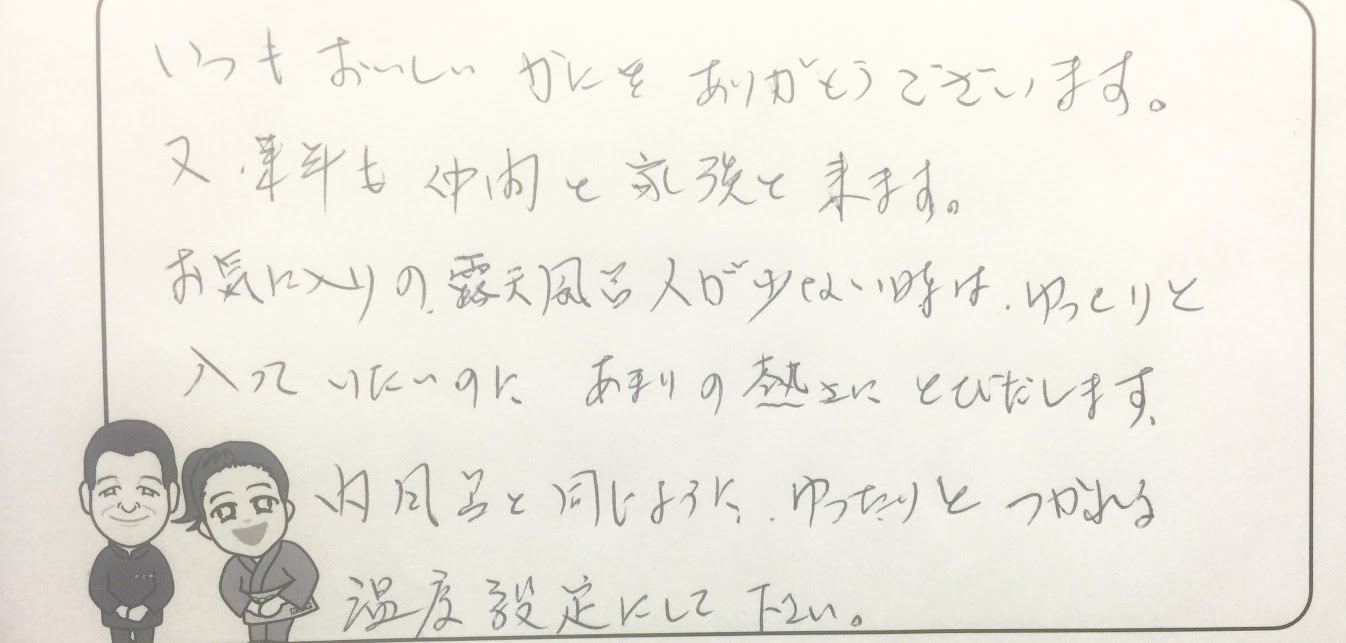 いつも おいしい かにを ありがとうございます。
又、来年も 仲間と 家族と 来ます。
お気に入りの、露天風呂 人が少ない時は、ゆっくりと
入って いたいのに あまりの 熱さに とびだします、
内風呂と同じように、ゆったりと つかれる
温度設定にして 下さい。